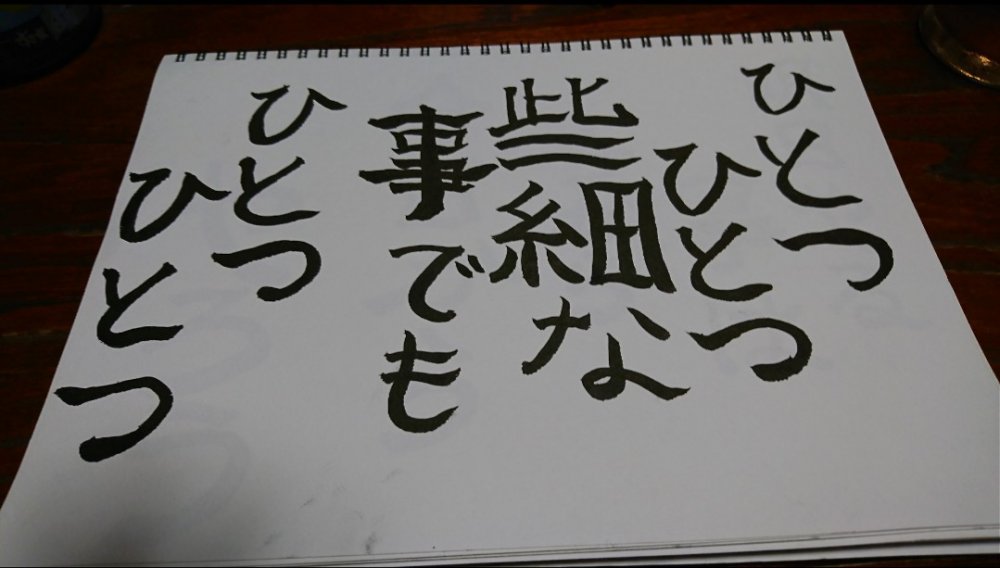 ひとつ
ひとつ
些細な
事でも
ひとつ
ひとつ